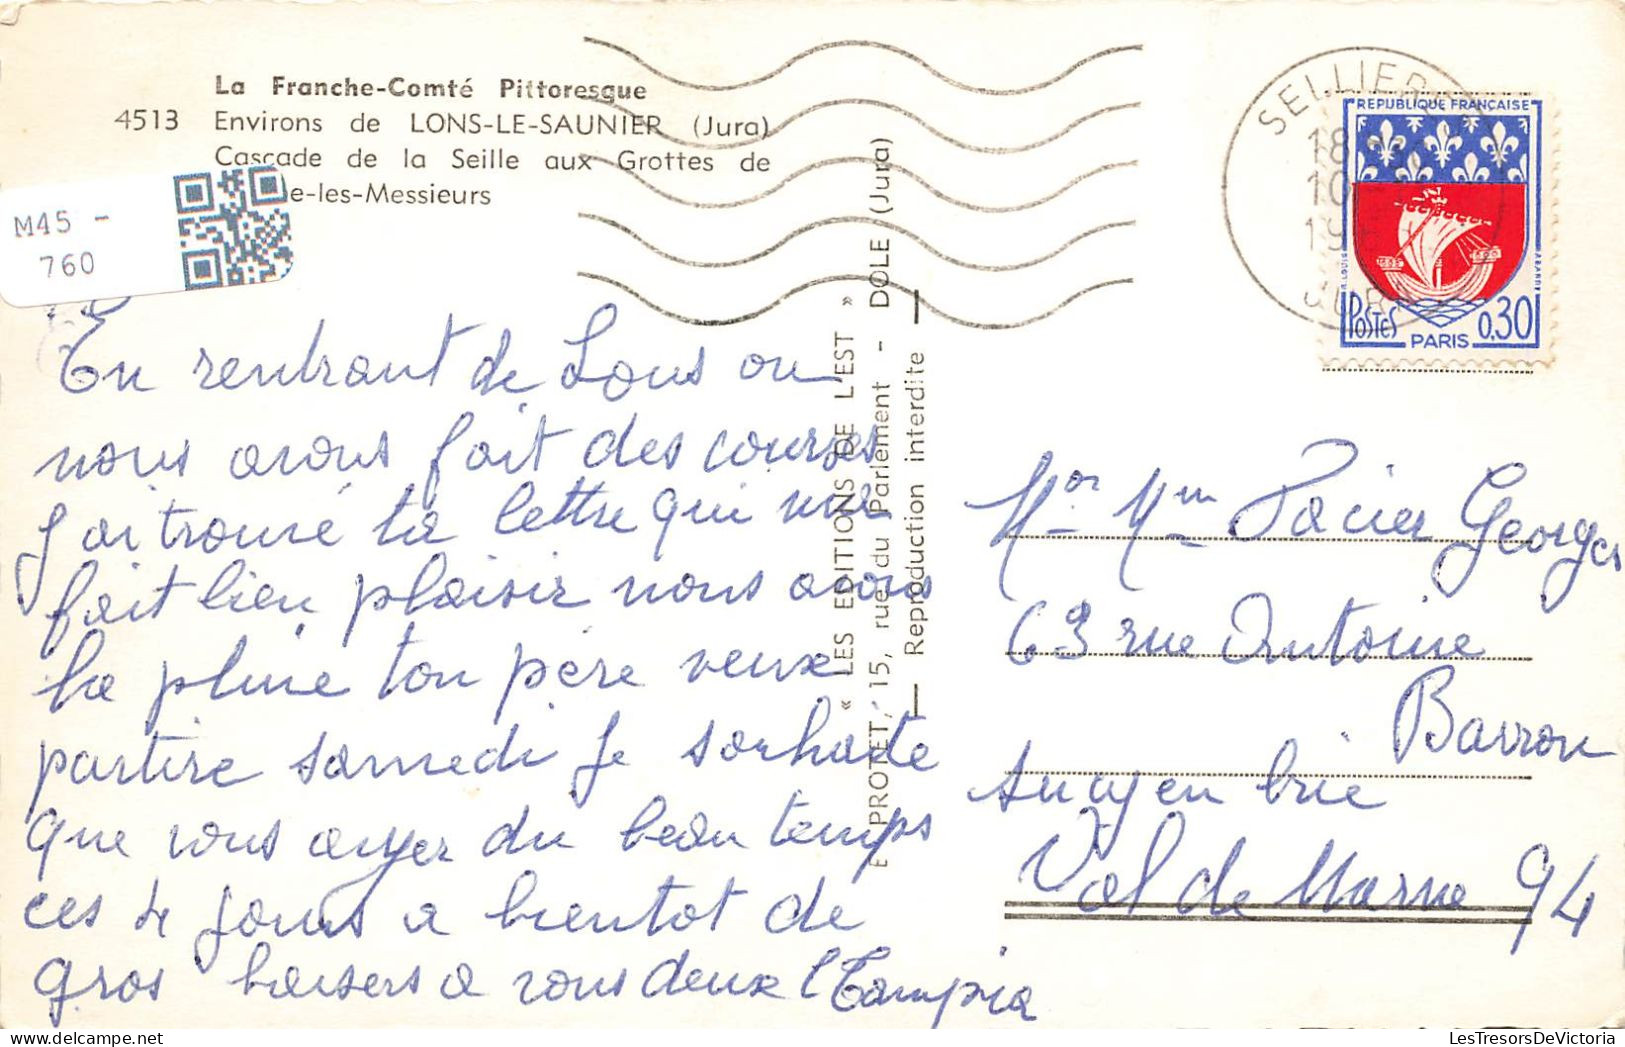 La Franche-Comté Pittoresque
4513 Environs de LONS-LE-SAUNIER (Jura)
Cascade de la Seille aux Grottes de
e-les-Messieurs
M45 -
760
En rentrant de Lons ou
nous avons fait des courses
j'ai trouvé ta lettre qui me
fait bien plaisir nous avons
la pluie ton père veux
partire samedi je souhaite
que vous ayer du beau temps
ces 4 jours a bientot de
gros baisers a vous deux
« LES EDITIONS DE L'EST »
E. PROTET, 15, rue du Parlement - DOLE (Jura)
— Reproduction interdite —
SELLIER
18
10
19
JURA
REPUBLIQUE FRANÇAISE
POSTES PARIS 0,30
Mor Mm Pacier Georges
63 rue Antoine
Barron
Sucy en brie
Val de Marne 94
LesTresorsDeVictoria